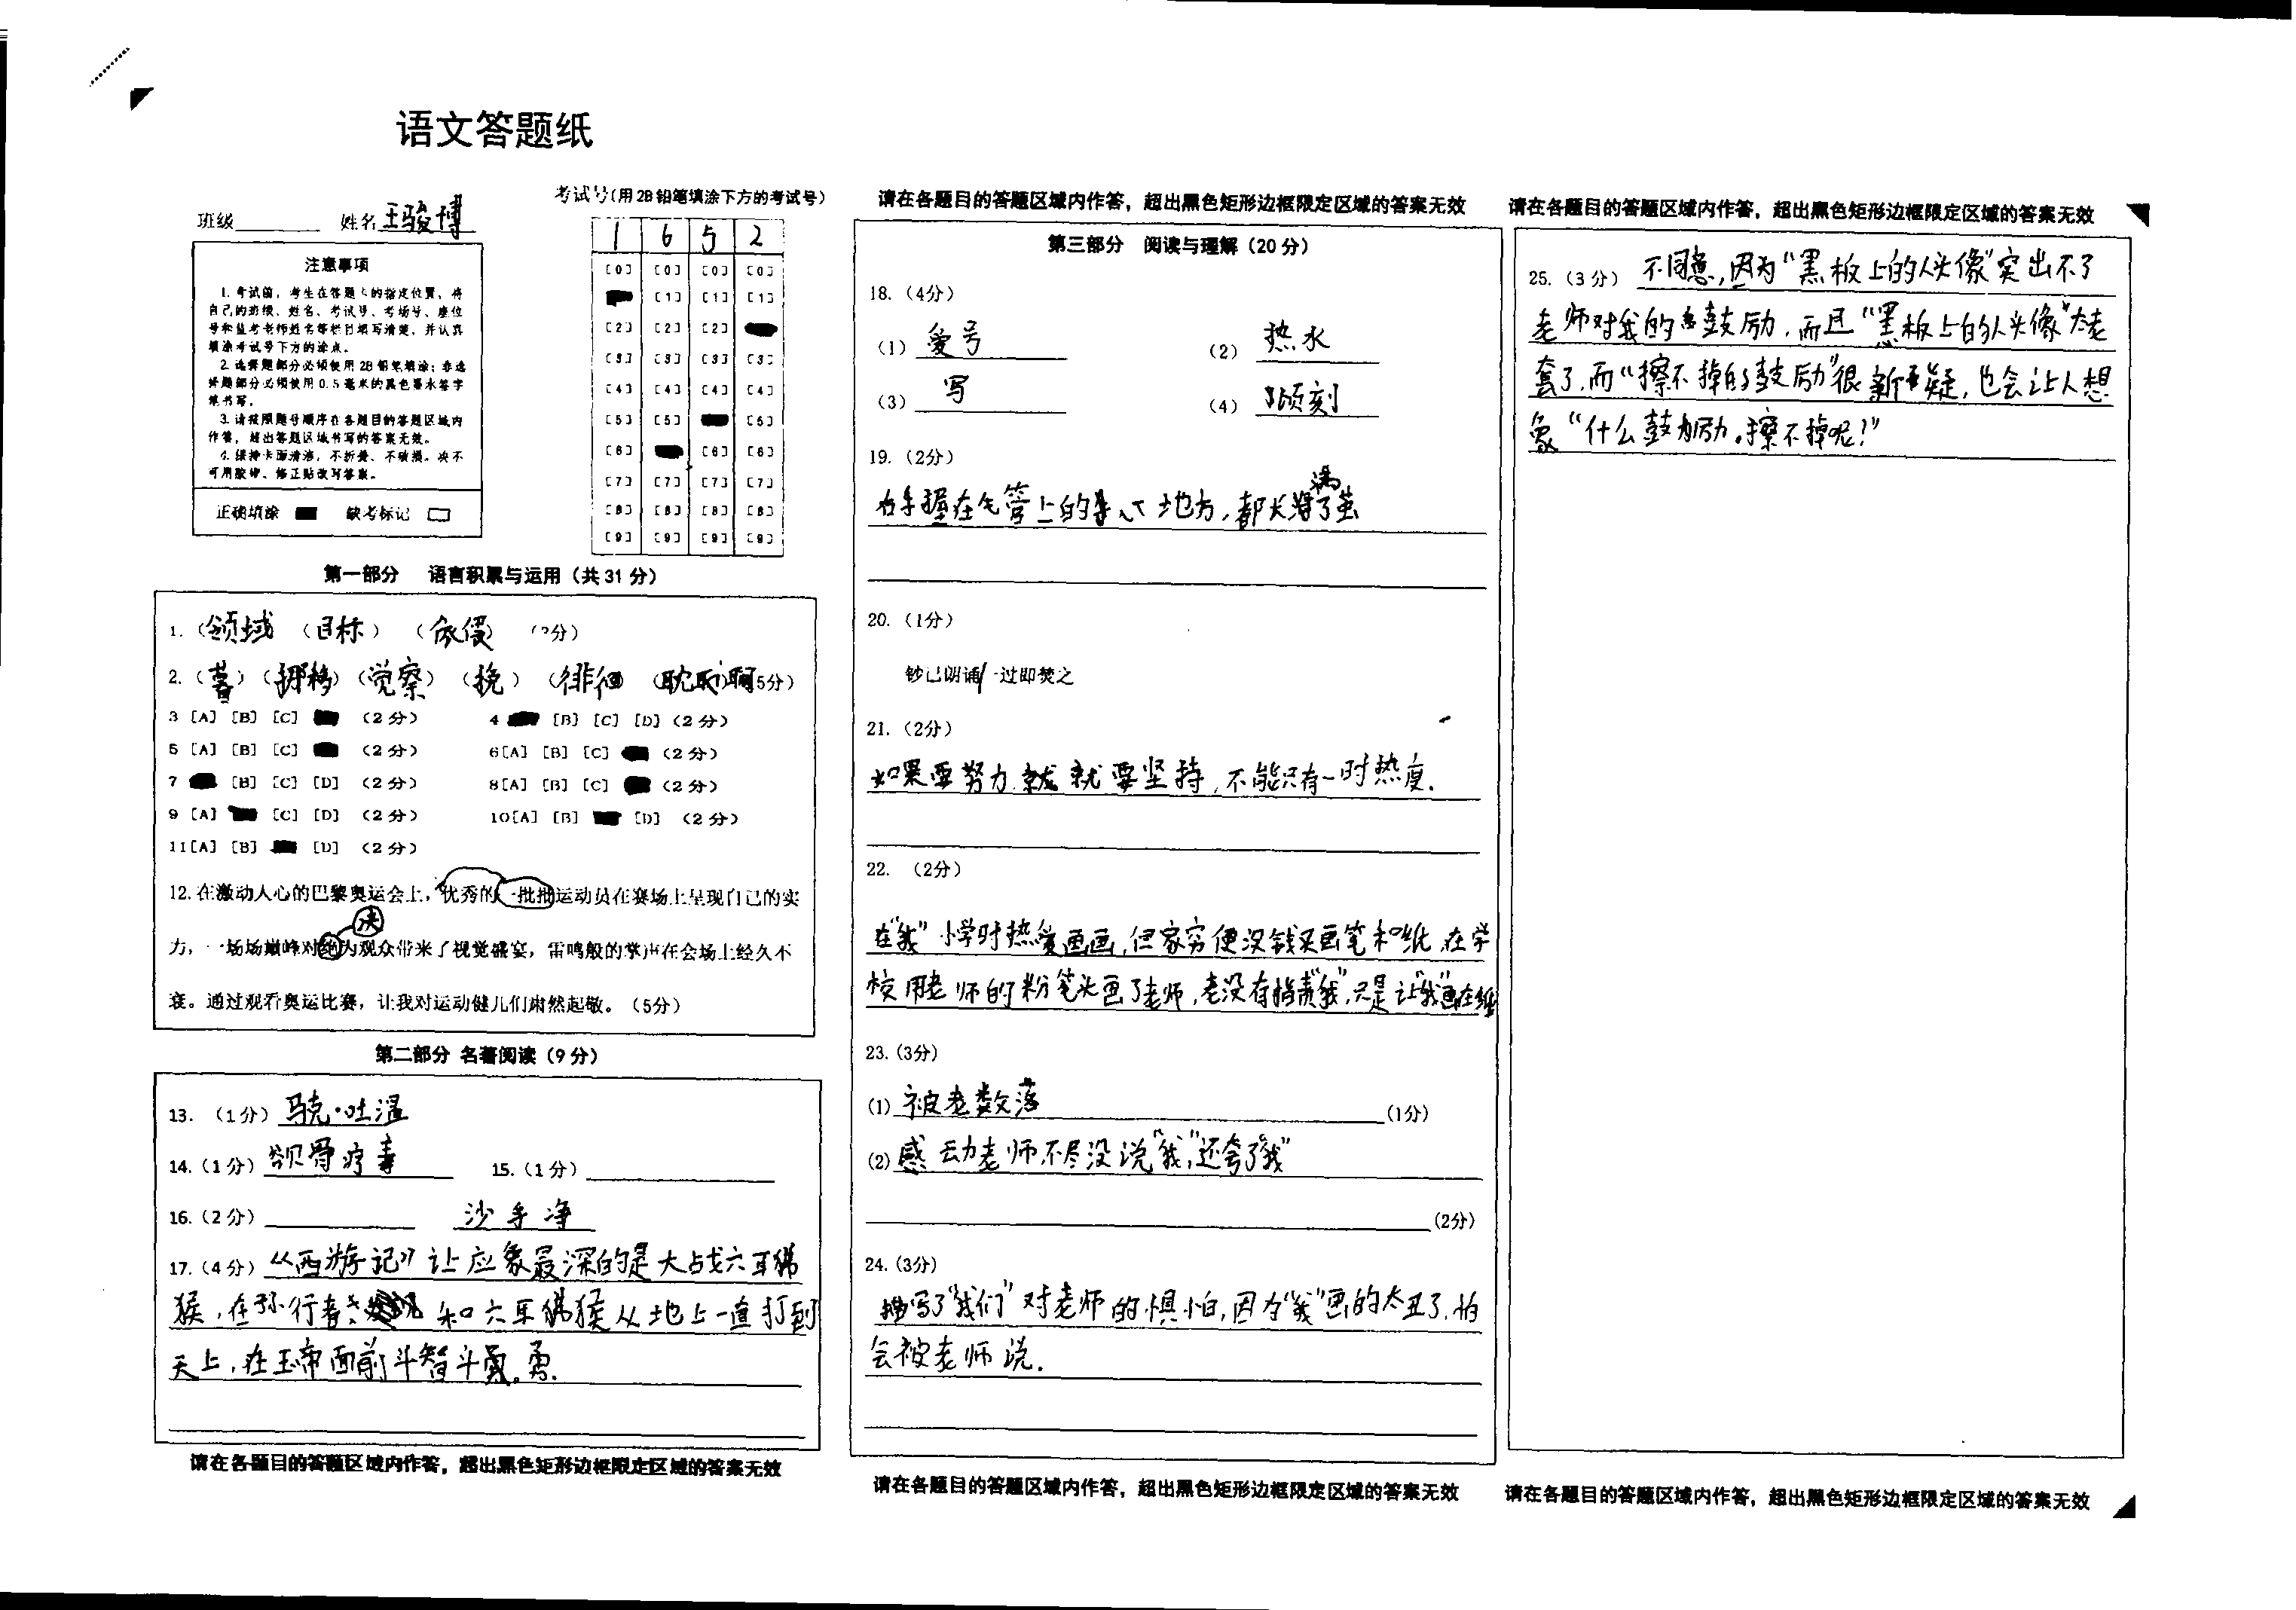 语文答题纸
班级 姓名 王骏博
考试号(用2B铅笔填涂下方的考试号)
1 6 5 2
注意事项
1. 考试前，考生在答题卡的指定位置，将
自己的班级、姓名、考试号、考场号、座位
号和监考老师姓名等栏目填写清楚，并认真
填涂考试号下方的涂点。
2. 选择题部分必须使用2B铅笔填涂；非选
择题部分必须使用0.5毫米的黑色墨水签字
笔书写。
3. 请按照题号顺序在各题目的答题区域内
作答，超出答题区域书写的答案无效。
4. 保持卡面清洁，不折叠、不破损。决不
可用胶带、修正贴改写答案。
正确填涂 缺考标记
[0] [0] [0] [0]
[1] [1] [1]
[2] [2] [2]
[3] [3] [3] [3]
[4] [4] [4] [4]
[5] [5] [5]
[6] [6] [6]
[7] [7] [7] [7]
[8] [8] [8] [8]
[9] [9] [9] [9]
第一部分 语言积累与运用（共31分）
1.（领域 （目标） （ ） （3分）
2.（暮）（挪移）（觉察）（挽）（徘徊 （ 5分）
3 [A] [B] [C] （2分） 4 [B] [C] [D]（2分）
5 [A] [B] [C] （2分） 6[A] [B] [C] （2分）
7 [B] [C] [D] （2分） 8[A] [B] [C] （2分）
9 [A] [C] [D] （2分） 10[A] [B] [D] （2分）
11[A] [B] [D] （2分）
12.在激动人心的巴黎奥运会上，优秀的一批批运动员在赛场上呈现自己的实
决
力，一场场巅峰对绝为观众带来了视觉盛宴，雷鸣般的掌声在会场上经久不
衰。通过观看奥运比赛，让我对运动健儿们肃然起敬。（5分）
第二部分 名著阅读（9分）
13.（1分）马克·吐温
14.（1分） 骨疗毒 15.（1分）
16.（2分） 沙 净
17.（4分）《西游记》让应象最深的是大战六耳猕
猴，在孙行者 和六耳猕猴从地上一直打到
天上，在玉帝面前斗智斗勇。勇.
请在各题目的答题区域内作答，超出黑色矩形边框限定区域的答案无效
请在各题目的答题区域内作答，超出黑色矩形边框限定区域的答案无效
第三部分 阅读与理解（20分）
18.（4分）
（1）爱号 （2）热水
（3）写 （4）顷刻
19.（2分）
满
右手握在笔管上的 地方，都长 了茧
20.（1分）
钞已朗诵/一过即焚之
21.（2分）
如果要努力 就要坚持，不能只有一时热度.
22.（2分）
在“我”小学时热爱画画，但家穷便没钱买画笔和纸 在学
校用老师的粉笔头画了老师，老没有指责“我”，只是让“我”画在纸
23.（3分）
(1) 被老数落 (1分)
(2) 感动老师不尽没说“我”，还夸了“我”
(2分)
24.（3分）
描写了“我们”对老师的惧怕，因为“我”画的太丑了，怕
会被老师说.
请在各题目的答题区域内作答，超出黑色矩形边框限定区域的答案无效
请在各题目的答题区域内作答，超出黑色矩形边框限定区域的答案无效
25.（3分）不同意，因为“黑板上的人头像”突出不了
老师对我的 鼓励，而且“黑板上的人头像”太老
套了，而“擦不掉的鼓励”很新 疑，也会让人想
象“什么鼓励。擦不掉呢？”
请在各题目的答题区域内作答，超出黑色矩形边框限定区域的答案无效